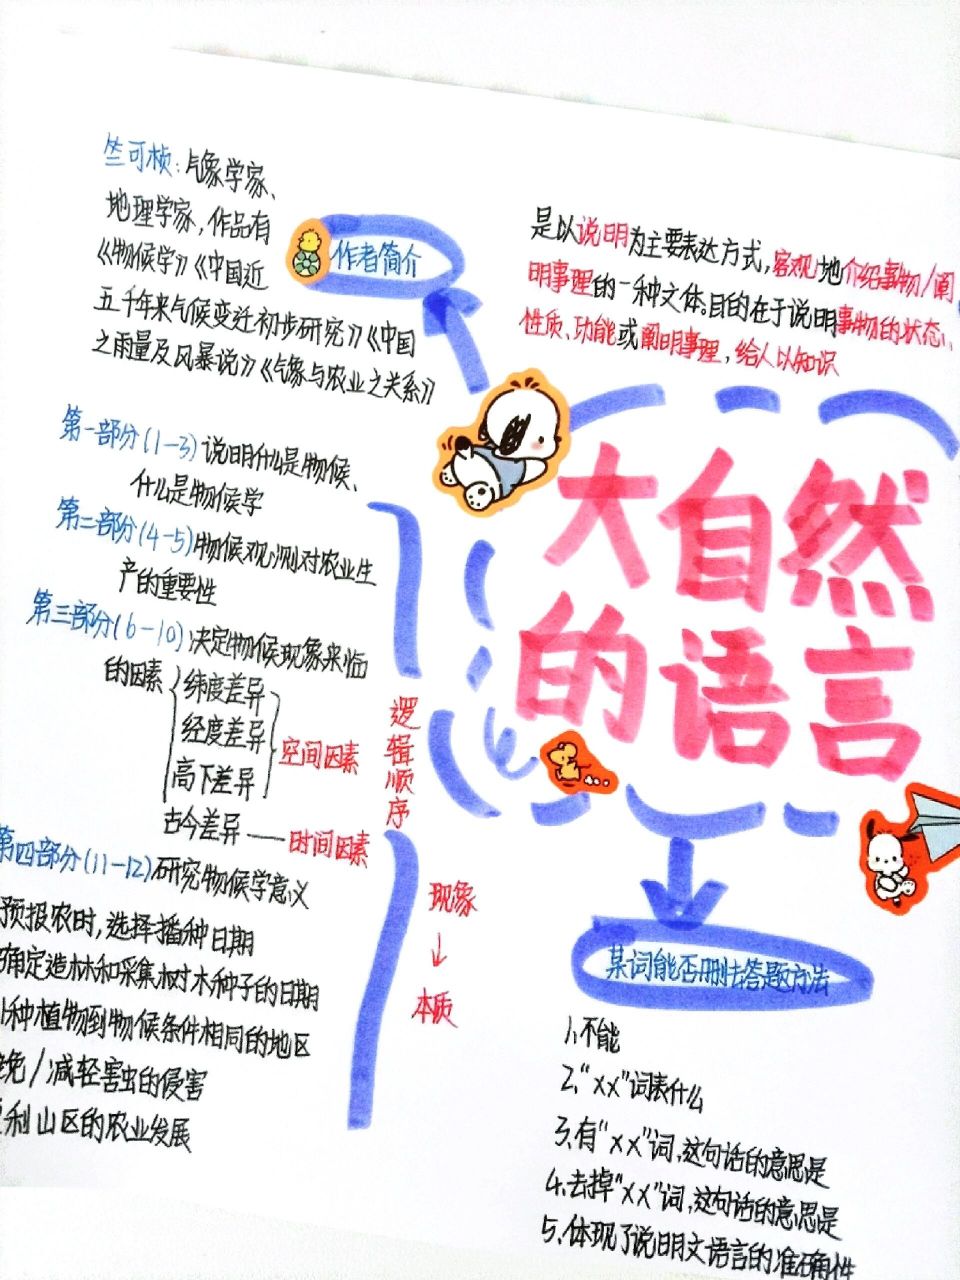 竺可桢：气象学家、
地理学家，作品有
《物候学》《中国近
五千年来气候变迁初步研究》《中国
之雨量及风暴说》《气象与农业之关系》
作者简介
是以说明为主要表达方式，客观地介绍事物/阐
明事理的一种文体。目的在于说明事物的状态、
性质、功能或阐明事理，给人以知识
大自然
的语言
第一部分(1-3)说明什么是物候、
什么是物候学
第二部分(4-5)物候观测对农业生
产的重要性
第三部分(6-10)决定物候现象来临
的因素
纬度差异
经度差异
高下差异
空间因素
古今差异——时间因素
第四部分(11-12)研究物候学意义
预报农时，选择播种日期
确定造林和采集树木种子的日期
种植物到物候条件相同的地区
免/减轻害虫的侵害
利山区的农业发展
逻辑顺序
现象
↓
本质
某词能否删去答题方法
1、不能
2、“xx”词表什么
3、有“xx”词，这句话的意思是
4、去掉“xx”词，这句话的意思是
5、体现了说明文语言的准确性